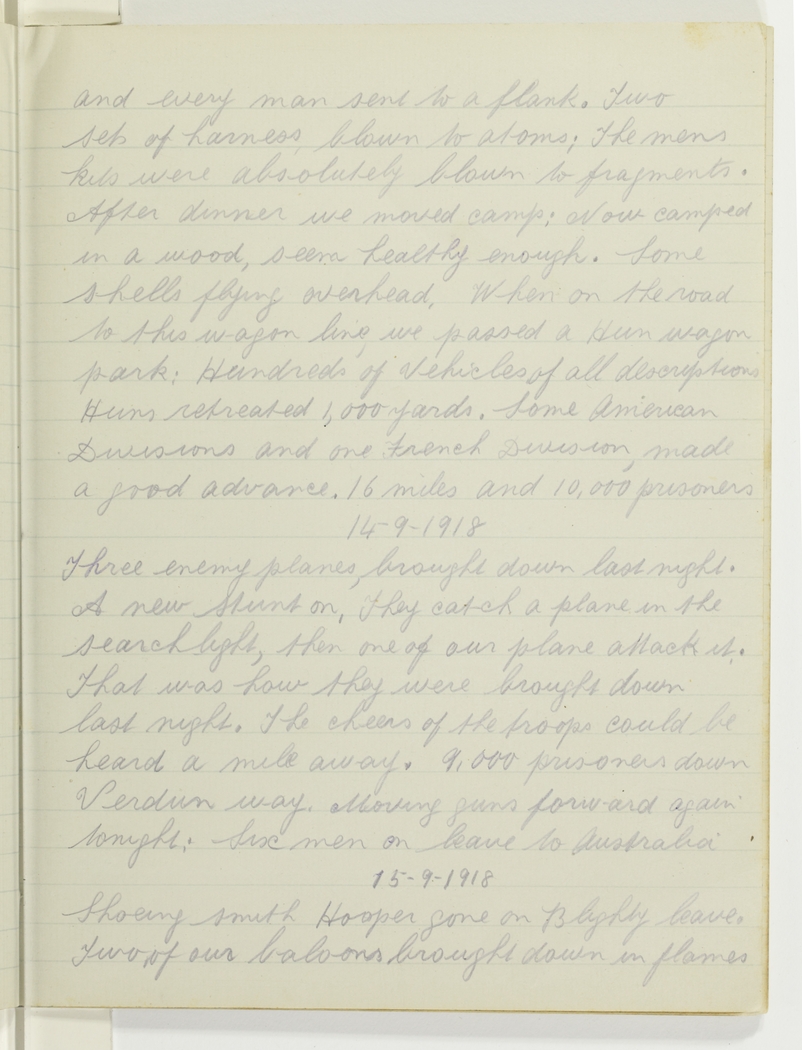 and every man sent to a flank. Two
sets of harness, blown to atoms; The mens
kits were absolutely blown to fragments.
After dinner we moved camp: Now camped
in a wood, seem healthy enough. Some
shells flying overhead. When on the road
to this wagon line, we passed a Hun wagon
park: Hundreds of Vehicles of all descriptions
Huns retreated 1,000 yards. Some American
Divisions and one French Division, made
a good advance. 16 miles and 10,000 prisoners
14-9-1918
Three enemy planes, brought down last night.
A new Stunt on, They catch a plane in the
searchlight, then one of our plane attack it.
That was how they were brought down
last night. The cheers of the troops could be
heard a mile away. 9,000 prisoners down
Verdun way. Moving guns forward again
tonight: Six men on leave to Australia
15-9-1918
Shoeing smith Hooper gone on Blighty leave.
Two, of our baloons brought down in flames